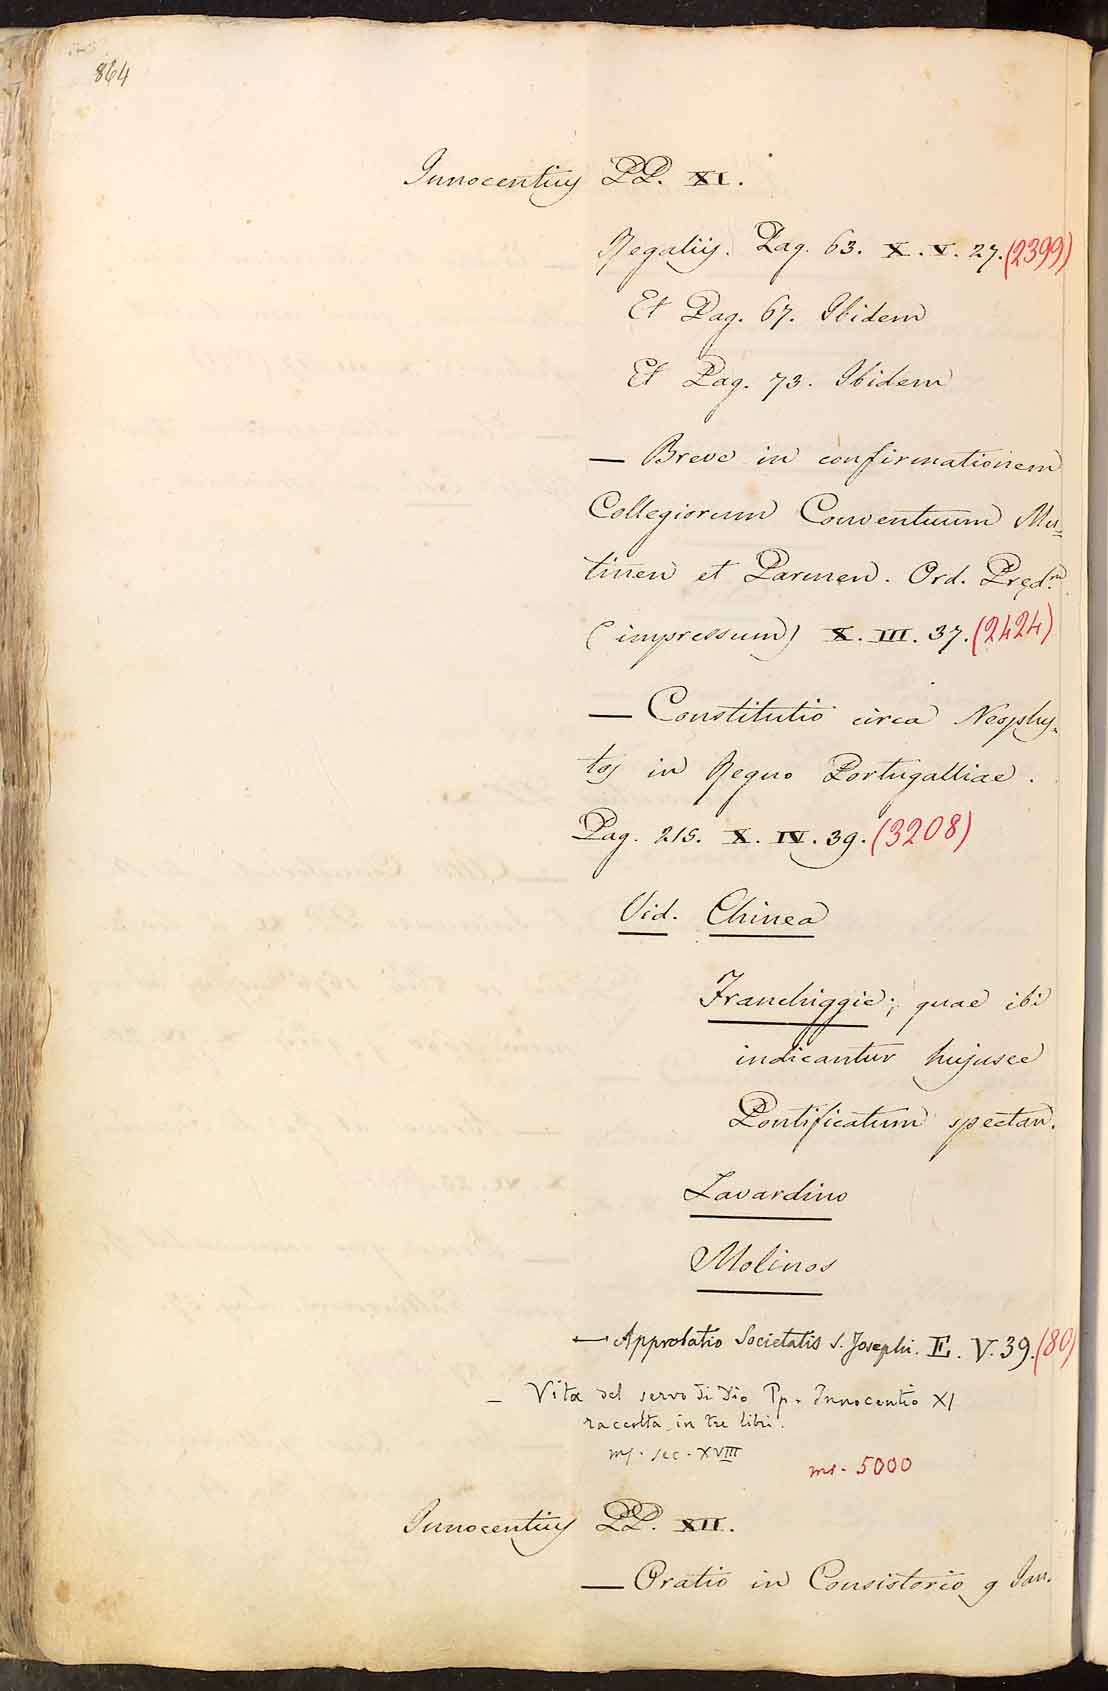 864
Innocentius PP. XI.
Regaliis. Pag. 63. X. V. 27. (2399)
Et Pag. 67. Ibidem
Et Pag. 73. Ibidem
— Breve in confirmationem
Collegiorum Conventuum Mu=
tinen et Parmen. Ord. Pręd.m
(impressum) X. III. 37. (2424)
— Constitutio circa Neophy=
tos in Regno Portugalliae.
Pag. 215. X. IV. 39. (3208)
Vid. Chinea
Franchiggie; quae ibi
indicantur hujusce
Pontificatum spectan.
Lavardino
Molinos
— Approbatio Societatis S. Josephi. E. V. 39. (80)
— Vita del servo di Dio Pp. Innocentio XI
raccolta in tre libri.
ms. sec. XVIII
ms. 5000
Innocentius PP. XII.
— Oratio in Consistorio 9 Jan.